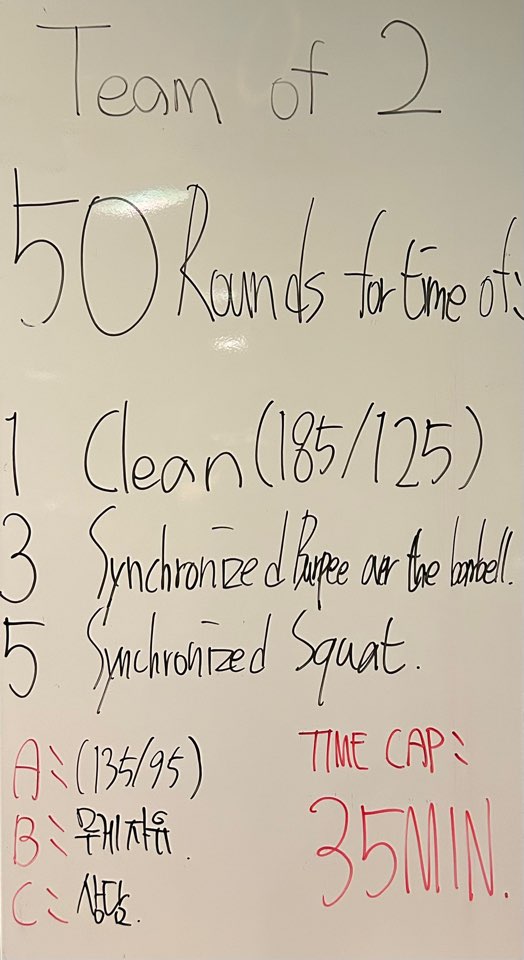 Team of 2
50 Rounds for time of:
1 Clean (185/125)
3 Synchronized Burpee over the barbell.
5 Synchronized Squat.
A: (135/95)
B: 무게자유.
C: 상담.
TIME CAP:
35MIN.